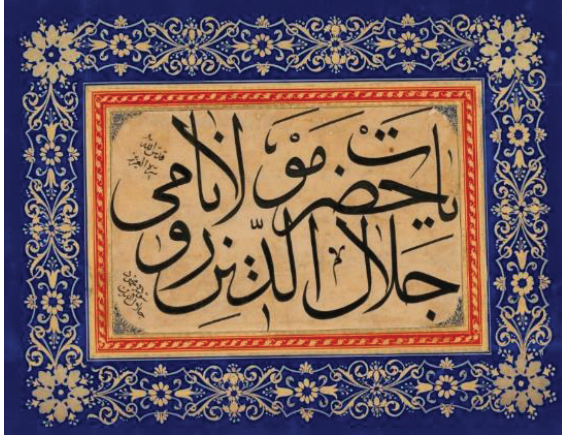 يا حضرت مولانا
جلال الدين رومى
قدس الله
سره العزيز